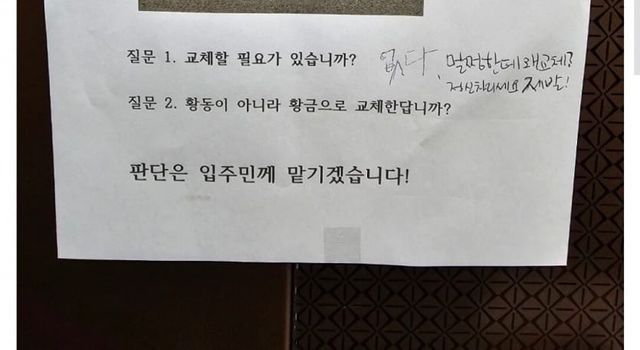 질문 1. 교체할 필요가 있습니까? 없다. 멀쩡한데 왜교체?
정신차리세요 제발!
질문 2. 황동이 아니라 황금으로 교체한답니까?
판단은 입주민께 맡기겠습니다!